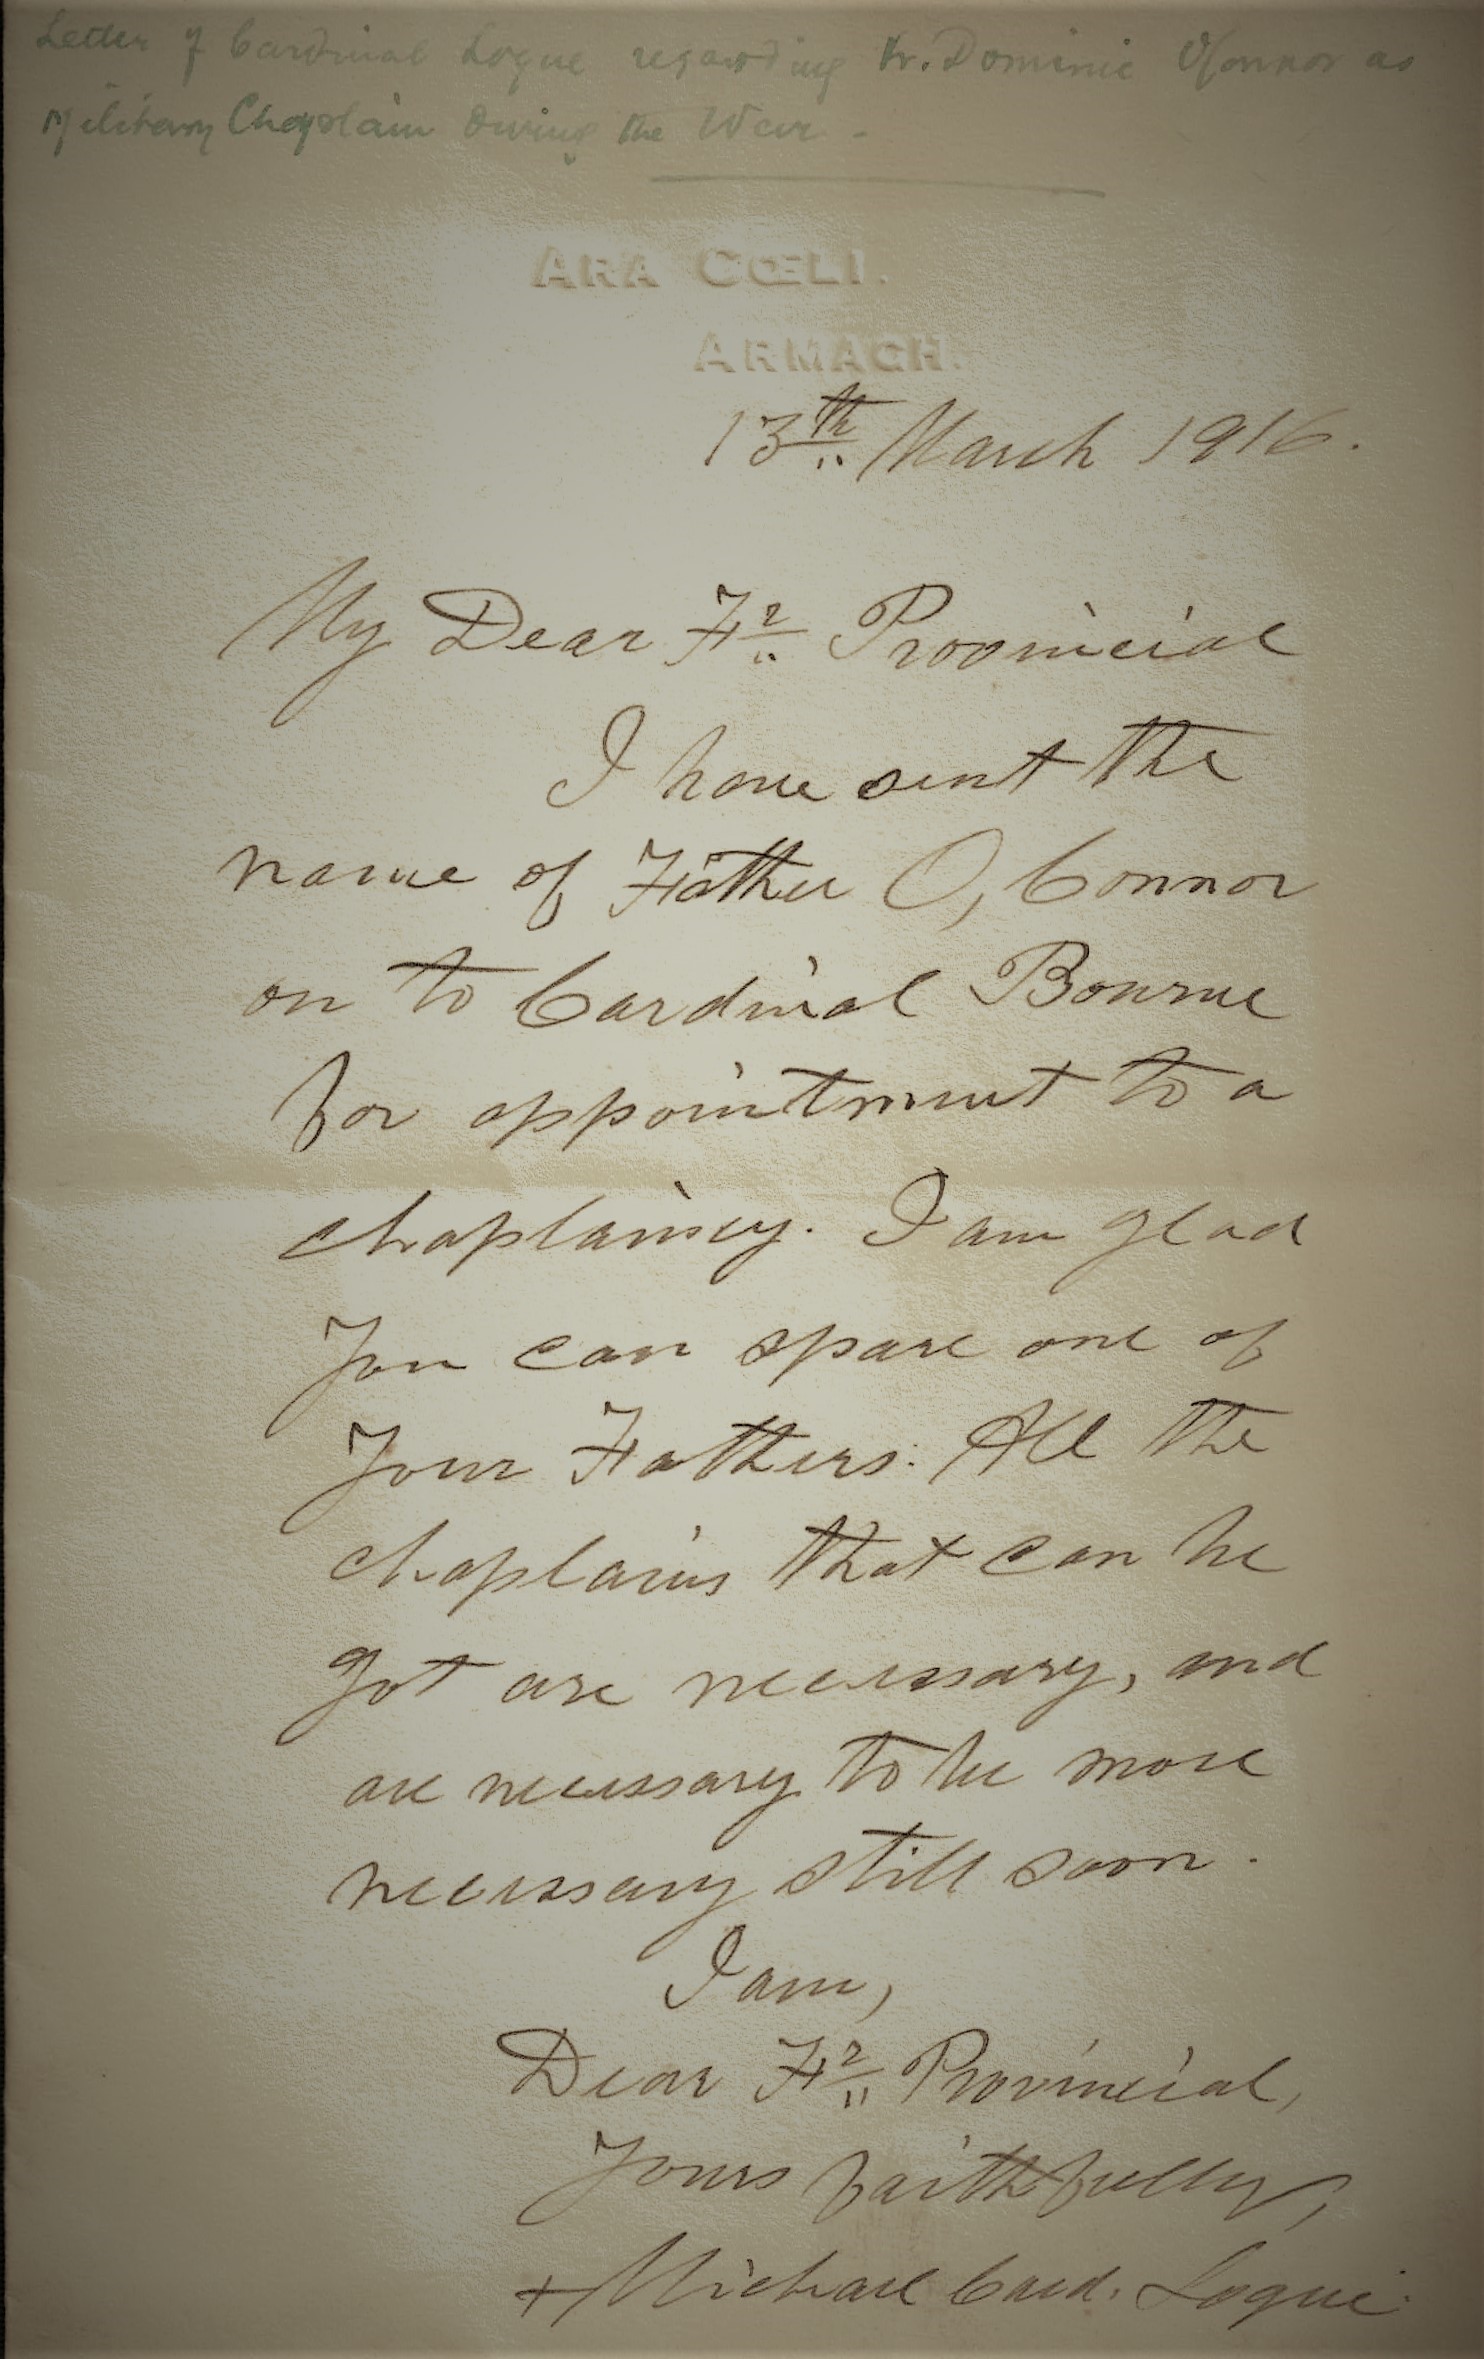 Letter of Cardinal Logue regarding Fr. Dominic O'Connor as
Military Chaplain During the War -
ARA CŒLI.
ARMAGH.
13th March 1916.
My Dear Fr Provincial
I have sent the
name of Father O'Connor
on to Cardinal Bourne
for appointment to a
chaplaincy. I am glad
you can spare one of
your Fathers. All the
chaplains that can be
got are necessary, and
are necessary to be more
necessary still soon.
I am,
Dear Fr Provincial,
Yours faithfully,
+Michael Card. Logue.